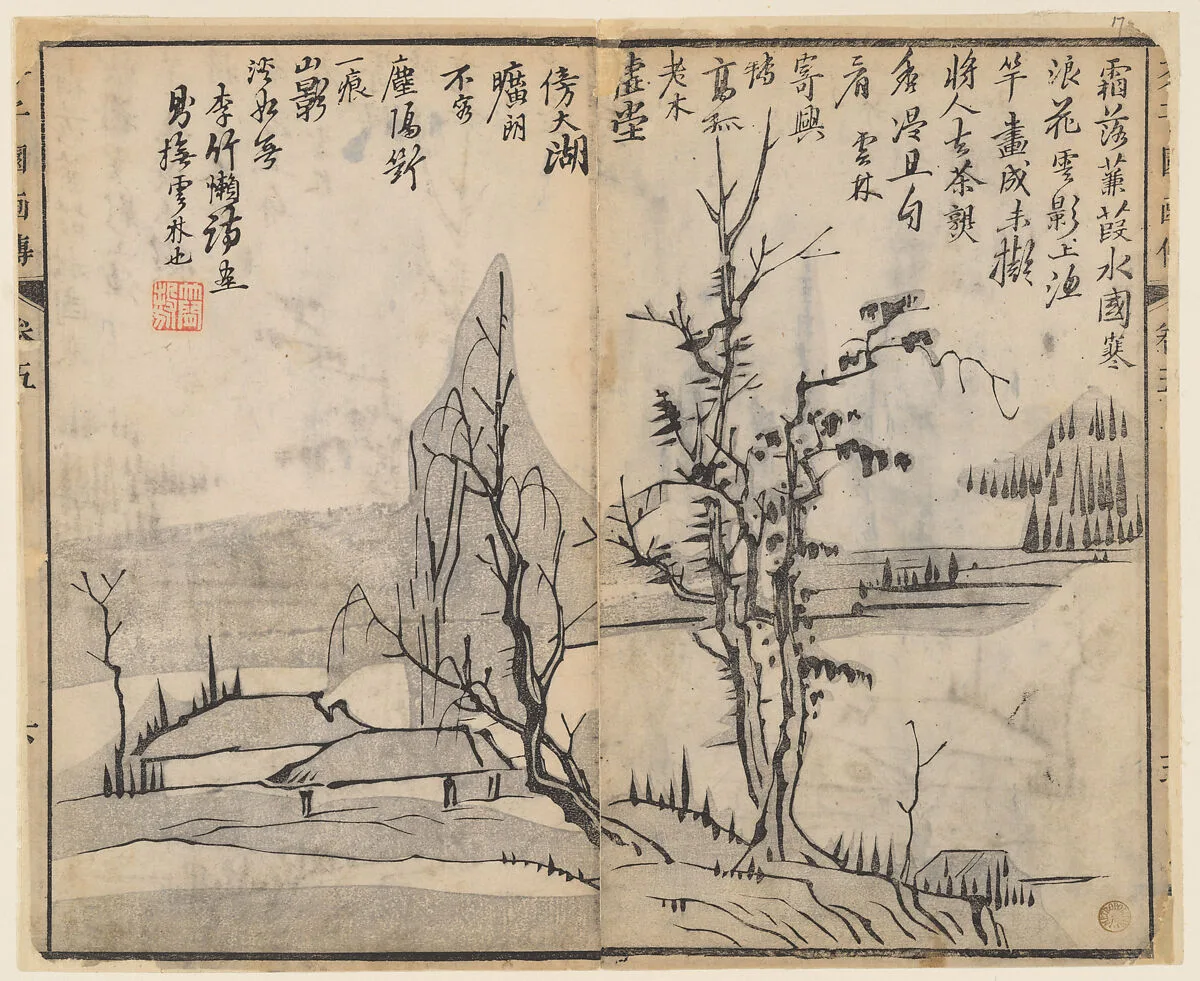 霜落蒹葭水國寒
浪花雲影上漁
竿畫成未擬
將人去茶熟
香溫且自
看 雲林
寄興
特
高孤
老木
虛堂
傍大湖
曠朗
不容
塵隔斷
一痕
山影
淡如無
李竹懶詩並
撫雲林也
子園畫傳
卷五